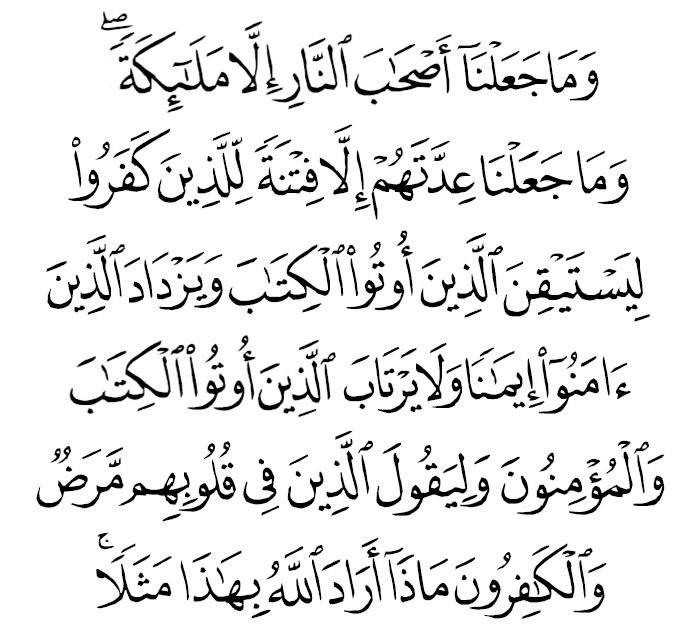 وَمَا جَعَلْنَآ أَصْحَـٰبَ ٱلنَّارِ إِلَّا مَلَـٰٓئِكَةً ۖ
وَمَا جَعَلْنَا عِدَّتَهُمْ إِلَّا فِتْنَةً لِّلَّذِينَ كَفَرُوا۟
لِيَسْتَيْقِنَ ٱلَّذِينَ أُوتُوا۟ ٱلْكِتَـٰبَ وَيَزْدَادَ ٱلَّذِينَ
ءَامَنُوٓا۟ إِيمَـٰنًا وَلَا يَرْتَابَ ٱلَّذِينَ أُوتُوا۟ ٱلْكِتَـٰبَ
وَٱلْمُؤْمِنُونَ وَلِيَقُولَ ٱلَّذِينَ فِى قُلُوبِهِم مَّرَضٌ
وَٱلْكَـٰفِرُونَ مَاذَآ أَرَادَ ٱللَّهُ بِهَـٰذَا مَثَلًا ۚ